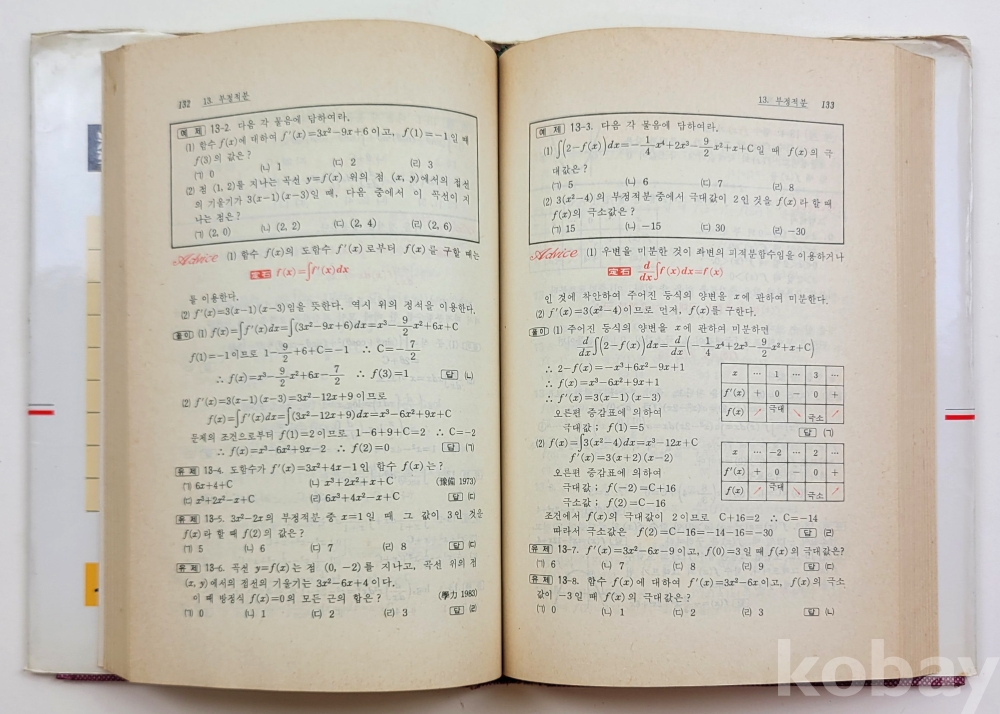 132 13. 부정적분
예제 13-2. 다음 각 물음에 답하여라.
(1) 함수 f(x)에 대하여 f′(x)=3x²-9x+6이고, f(1)=-1일 때
f(3)의 값은?
(ㄱ) 0 (ㄴ) 1 (ㄷ) 2 (ㄹ) 3
(2) 점 (1, 2)를 지나는 곡선 y=f(x) 위의 점 (x, y)에서의 접선
의 기울기가 3(x-1)(x-3)일 때, 다음 중에서 이 곡선이 지
나는 점은?
(ㄱ) (2, 0) (ㄴ) (2, 2) (ㄷ) (2, 4) (ㄹ) (2, 6)
Advice (1) 함수 f(x)의 도함수 f′(x)로부터 f(x)를 구할 때는
定石 f(x)=∫f′(x)dx
를 이용한다.
(2) f′(x)=3(x-1)(x-3)임을 뜻한다. 역시 위의 정석을 이용한다.
풀이 (1) f(x)=∫f′(x)dx=∫(3x²-9x+6)dx=x³-9/2x²+6x+C
f(1)=-1이므로 1-9/2+6+C=-1 ∴ C=-7/2
∴ f(x)=x³-9/2x²+6x-7/2 ∴ f(3)=1 답 (ㄴ)
(2) f′(x)=3(x-1)(x-3)=3x²-12x+9이므로
f(x)=∫f′(x)dx=∫(3x²-12x+9)dx=x³-6x²+9x+C
문제의 조건으로부터 f(1)=2이므로 1-6+9+C=2 ∴ C=-2
∴ f(x)=x³-6x²+9x-2 ∴ f(2)=0 답 (ㄱ)
유제 13-4. 도함수가 f′(x)=3x²+4x-1인 함수 f(x)는?
(ㄱ) 6x+4+C (ㄴ) x³+2x²+x+C (豫備 1973)
(ㄷ) x³+2x²-x+C (ㄹ) 6x³+4x²-x+C 답 (ㄷ)
유제 13-5. 3x²-2x의 부정적분 중 x=1일 때 그 값이 3인 것을
f(x)라 할 때 f(2)의 값은?
(ㄱ) 5 (ㄴ) 6 (ㄷ) 7 (ㄹ) 8 답 (ㄷ)
유제 13-6. 곡선 y=f(x)는 점 (0, -2)를 지나고, 곡선 위의 점
(x, y)에서의 접선의 기울기는 3x²-6x+4이다.
이 때 방정식 f(x)=0의 모든 근의 합은? (學力 1983)
(ㄱ) 0 (ㄴ) 1 (ㄷ) 2 (ㄹ) 3 답 (ㄹ)
13. 부정적분 133
예제 13-3. 다음 각 물음에 답하여라.
(1) ∫(2-f(x))dx=-1/4x⁴+2x³-9/2x²+x+C일 때 f(x)의 극
대값은?
(ㄱ) 5 (ㄴ) 6 (ㄷ) 7 (ㄹ) 8
(2) 3(x²-4)의 부정적분 중에서 극대값이 2인 것을 f(x)라 할 때
f(x)의 극소값은?
(ㄱ) 15 (ㄴ) -15 (ㄷ) 30 (ㄹ) -30
Advice (1) 우변을 미분한 것이 좌변의 피적분함수임을 이용하거나
定石 d/dx∫f(x)dx=f(x)
인 것에 착안하여 주어진 등식의 양변을 x에 관하여 미분한다.
(2) f′(x)=3(x²-4)이므로 먼저, f(x)를 구한다.
풀이 (1) 주어진 등식의 양변을 x에 관하여 미분하면
d/dx∫(2-f(x))dx=d/dx(-1/4x⁴+2x³-9/2x²+x+C)
∴ 2-f(x)=-x³+6x²-9x+1
∴ f(x)=x³-6x²+9x+1
∴ f′(x)=3(x-1)(x-3)
오른편 증감표에 의하여
극대값; f(1)=5
x … 1 … 3 …
f′(x) + 0 - 0 +
f(x) ↗ 극대 ↘ 극소 ↗
답 (ㄱ)
(2) f(x)=∫3(x²-4)dx=x³-12x+C
f′(x)=3(x+2)(x-2)
오른편 증감표에 의하여
극대값; f(-2)=C+16
극소값; f(2)=C-16
x … -2 … 2 …
f′(x) + 0 - 0 +
f(x) ↗ 극대 ↘ 극소 ↗
조건에서 f(x)의 극대값이 2이므로 C+16=2 ∴ C=-14
따라서 극소값은 f(2)=C-16=-14-16=-30 답 (ㄹ)
유제 13-7. f′(x)=3x²-6x-9이고, f(0)=3일 때 f(x)의 극대값은?
(ㄱ) 6 (ㄴ) 7 (ㄷ) 8 (ㄹ) 9 답 (ㄷ)
유제 13-8. 함수 f(x)에 대하여 f′(x)=3x²-6x이고, f(x)의 극소
값이 -3일 때 f(x)의 극대값은?
(ㄱ) 0 (ㄴ) 1 (ㄷ) 2 (ㄹ) 3 답 (ㄴ)
kobay